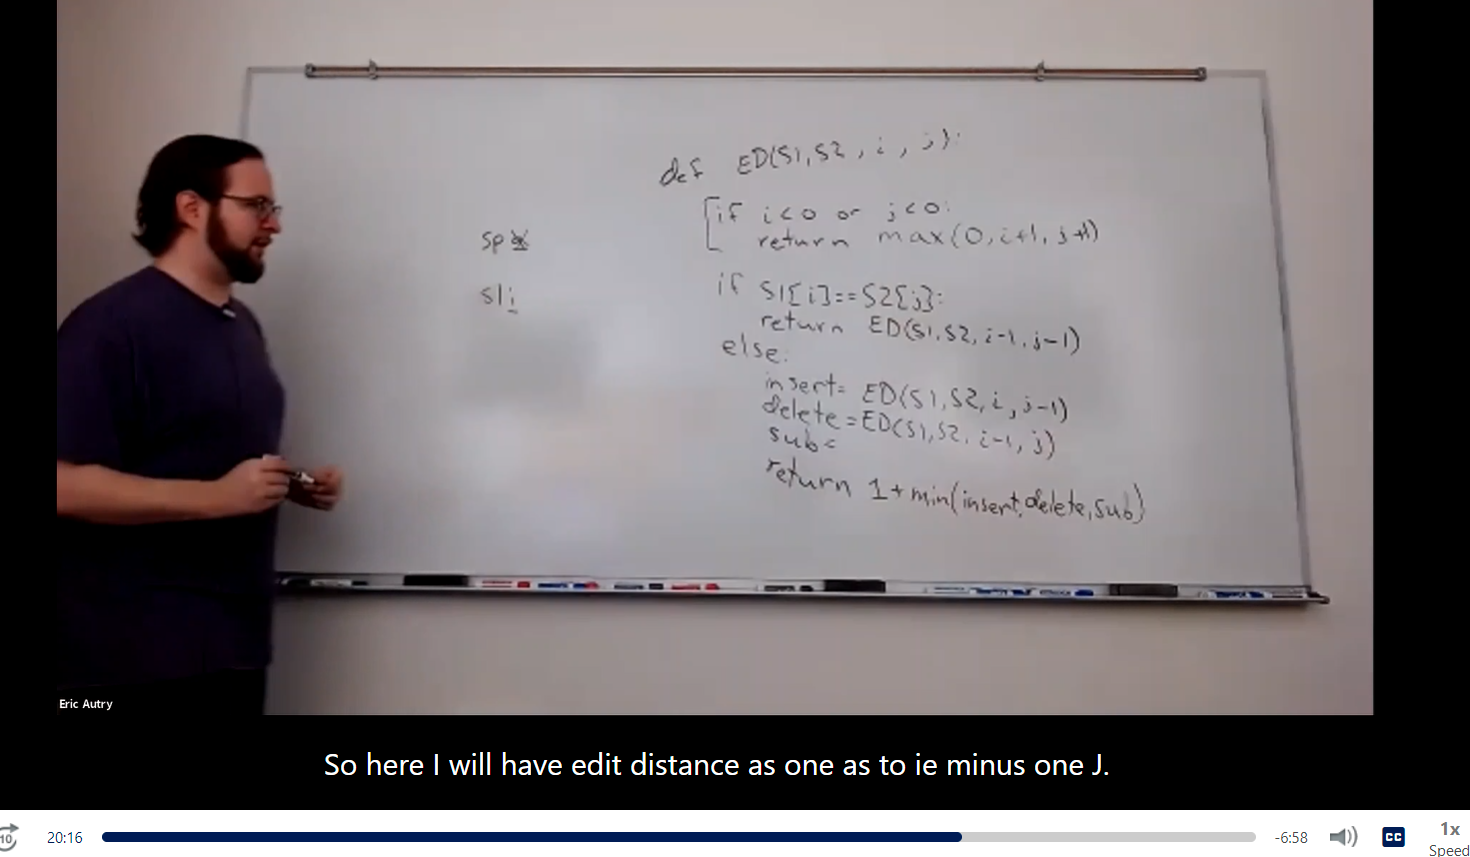 def ED(S1,S2,i,j):
if i<0 or j<0:
return max(0,i+1,j+1)
sp
sli
if S1[i]==S2[j]:
return ED(S1,S2,i-1,j-1)
else:
insert= ED(S1,S2,i,j-1)
delete=ED(S1,S2,i-1,j)
sub=
return 1+min(insert,delete,sub)
Eric Autry
So here I will have edit distance as one as to ie minus one J.
10 20:16 -6:58 CC 1x
Speed